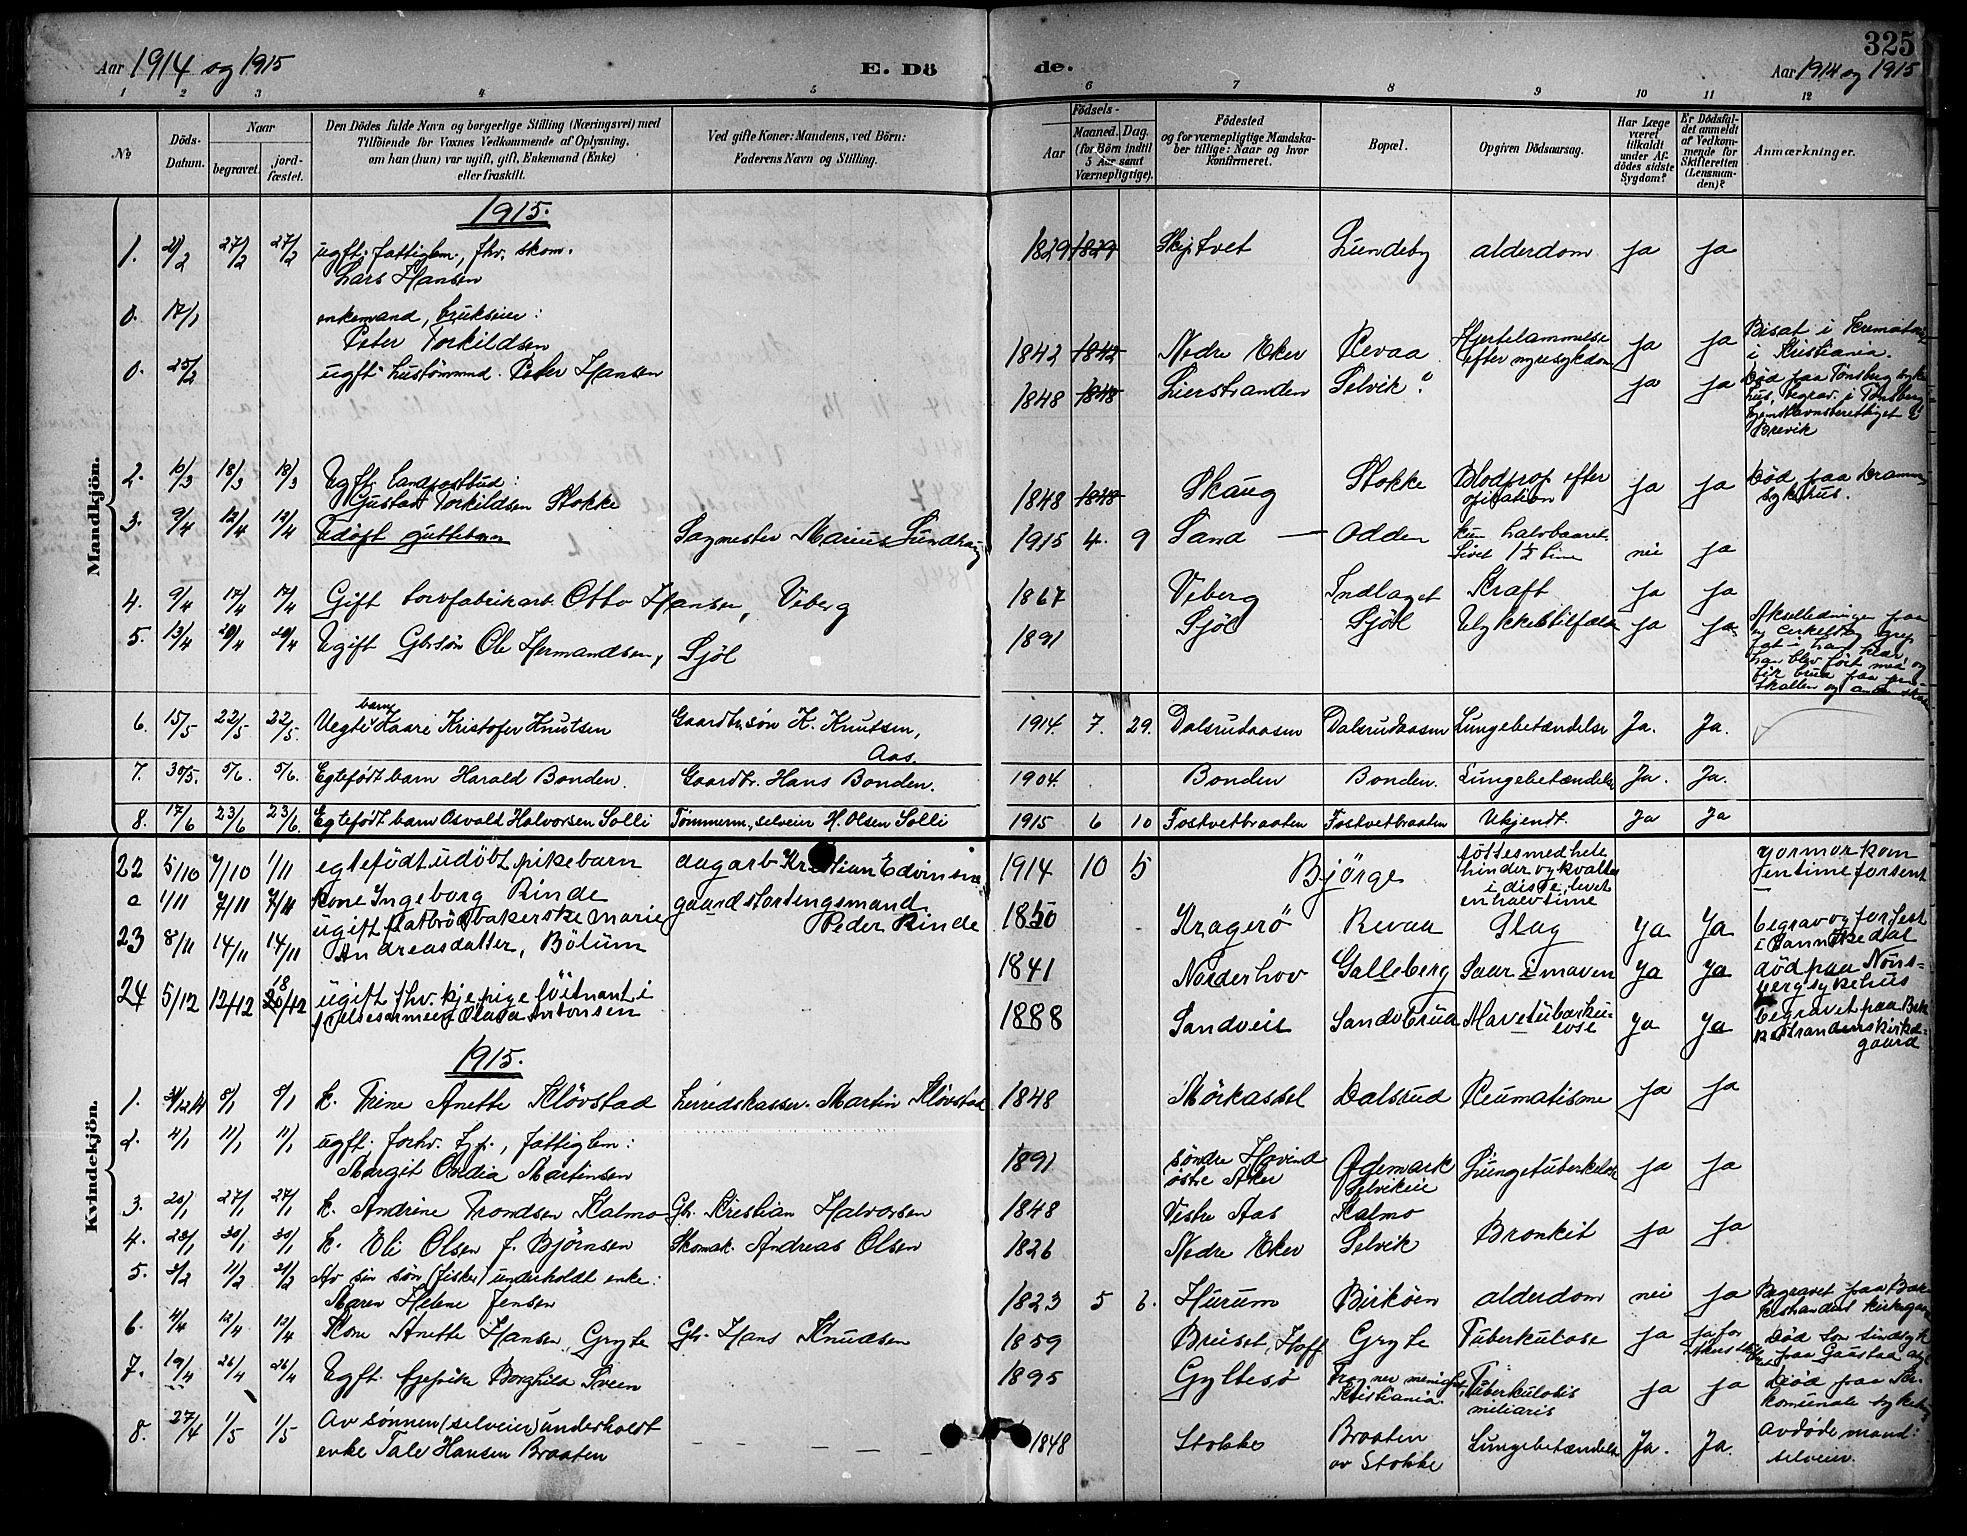 Aar 1914 og 1915
E. Dö
de.
325
Aar 1914 og 1915
1 2 3 4 5 6 7 8 9 10 11 12
No
Döds-Datum.
Naar
begravet.
jord-fæstet.
Den Dödes fulde Navn og borgerlige Stilling (Næringsvei) med
Tilföiende for Voxnes Vedkommende af Oplysning,
om han (hun) var ugift, gift, Enkemand (Enke)
eller fraskilt.
Ved gifte Koner: Mandens, ved Börn:
Faderens Navn og Stilling.
Födsels-
Aar
Maaned. Dag.
(for Börn indtil
5 Aar samt
Værnepligtige).
Födested
og for værnepligtige Mandska-
ber tillige: Naar og hvor
konfirmeret.
Bopæl.
Opgiven Dödsaarsag.
Har Læge
været
tilkaldt
under Af-
dödes sidste
Sygdom?
Er Dödsfal-
det anmeldt
af Vedkom-
mende for
Skifteretten
(Lensman-
den)?
Anmærkninger.
Mandkjön.
1915.
1. 2/2 27/2 27/2 ugft. fattiglem., fhv. skom. 1829 1829 Skiptvet Lundeby alderdom ja ja
Lars Hansen
0. 17/1 enkemand, brukseier:
Peter Torkildsen 1842 1842 Nedre Eker Revaa Hjertelammelse efter nyresykdom ja ja Bisat i Krematoriet i Kristiania.
0. 25/2 ugft. hustømmd. Peter Hansen 1848 1848 Lierstranden Selvik? ja ja Død paa Tønsberg syke-
hus, begrav. i Tønsberg
hjemstavnsberettiget i
Brevik
2. 10/3 18/3 18/3 Ugft. landpostbud:
Gustav Torkildsen Stokke 1848 1848 Skaug Stokke Blodprop efter operation ja ja Død paa Drammens sykehus.
3. 9/4 12/4 12/4 Udøpt guttebarn Sagmester Marius Sundhaug 1915 4. 9 Sand — Odden kun halvbaaret. Livet 1½ time nei ja
4. 9/4 17/4 17/4 Gift torvfabrikarb. Otto Hansen, Veberg 1867 Veberg Indlaget Kræft ja ja
5. 13/4 20/4 20/4 Ugift Gbrsøn Ole Hermandsen, Sjøl 1891 Sjøl Sjøl Ulykkestilfælde ja ja Akselledningen paa
en cirkelsag grep
fat i hans klær
han blev ført med og
fik brud paa
skallen og
6. 15/5 22/5 22/5. Uegte barn Kaare Kristofer Knutsen Gaardbr.søn K. Knutsen, Aas. 1914. 7. 29. Dalsrudaasen Dalsrudaasen Lungebetændelse Ja. Ja.
7. 30/5. 5/6. 5/6. Egtefødt barn Harald Bonden. Gaardbr. Hans Bonden. 1904. Bonden Bonden. Lungebetændelse Ja. Ja.
8. 17/6 23/6 23/6. Egtefødt barn Osvald Halvorsen Solli Tømmerm., selveier H. Olsen Solli 1915 6 10 Fostvetbraaten Fostvetbraaten Ukjendt. Ja Ja
Kvindekjön.
22 5/10 7/10 1/11 egtefødt udöbt pikebarn dagarb. Kristian Edvinsen 1914 10 5 Bjørge föttes med hele hinder og kvaltes i disse, levet en halv time jormor kom en time forsent
0 1/11 7/11 7/11 kone Ingeborg Rinde gaard stortingsmand Peder Rinde 1850 Kragerö Revaa Slag Ja Ja begrav og forfest i Sannikedal
23 8/11 14/11 14/11 ugift flatbrödbakerske Marie Andreasdatter, Bölum 1841 Norderhov Galleberg Saar i maven Ja Ja död paa Tönsberg sykehus
24 5/12 12/12 18/12 ugift fhv. tj.pige löitnant i frelsesarmeen Olava Antonsen 1888 Sandveie Sandsbrud Mavetuberkulose Ja Ja begravet paa Bakkestrandens kirkegaard
1915.
1. 31/12 14 8/1 8/1 k. Trine Anette Kløvstad Herredskasser. Martin Kløvstad 1848 Mörkassel Dalsrud Reumatisme ja ja
2. 4/1 11/1 11/1 ugft. forhv. tjp., fattiglem:
Margit Ovidia Martinsen 1891 søndre Hovind østre Aker Ødemark Selvikeie Lungetuberkulose ja ja
3. 20/1 27/1 27/1 k. Andrine Trondsen Kalmo Gbr. Kristian Halvorsen 1848 Vestre Aas Kalmo
4. 23/1 30/1 30/1 k. Eli Olsen f. Bjørnsen Skomak. Andreas Olsen 1826 Nedre Eker Selvik Bronkit ja ja
5. 3/2 11/2 21/2 Av sin søn (fisker) underholdt enke:
Maren Helene Jensen 1823 5 6. Hurum Birköen alderdom nei ja Begravet paa Bakkestrandens kirkegaard
6. 4/4 12/4 12/4 Kone Anette Hansen, Gryte Gbr. Hans Knudsen 1859 Breiset, Hoff Gryte Tuberkulose ja ja Død som sindssyk paa Gaustad asyl
7. 19/4 26/4 26/4 Ugft. tjepike Borghild Sveen 1895 Gyltesø Frogner menighet, Kristiania Tuberkulosis miliaris ja ja Død paa Kr. komunale sykehus
8. 27/4 1/5 1/5 Av sønnen (selveier) underholdt
enke Tale Hansen Braaten — — — — — 1848 Stokke Braaten av Stokke Lungebetændelse Ja. Ja. Avdøde mand: selveier.